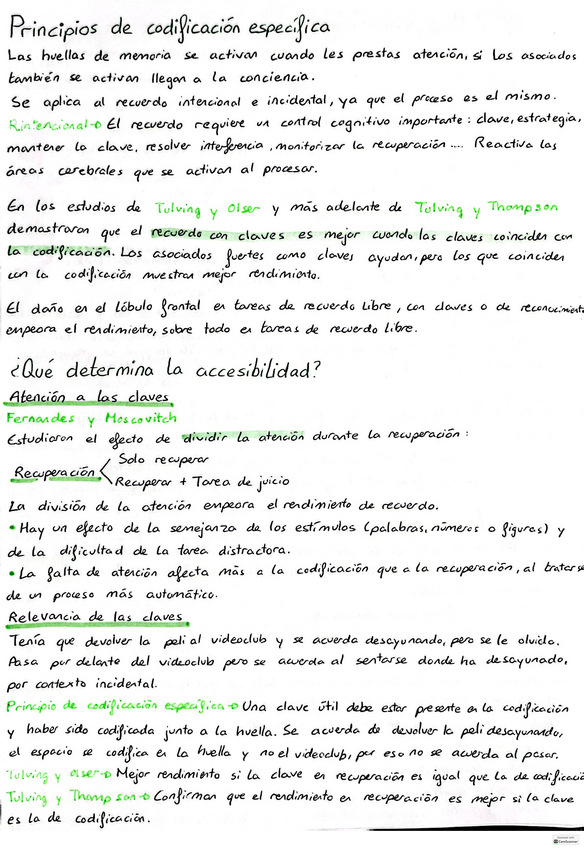 Principios de codificación específica
Las huellas de memoria se activan cuando les prestas atención, si los asociados
también se activan llegan a la conciencia.
Se aplica al recuerdo intencional e incidental, ya que el proceso es el mismo.
R.intencional→ El recuerdo requiere un control cognitivo importante: clave, estrategia,
mantener la clave, resolver interferencia, monitorizar la recuperación.... Reactiva las
áreas cerebrales que se activan al procesar.
En los estudios de Tulving y Olser y más adelante de Tulving y Thompson
demostraron que el recuerdo con claves es mejor cuando las claves coinciden con
la codificación. Los asociados fuertes como claves ayudan, pero los que coinciden
con la codificación muestran mejor rendimiento.
El daño en el lóbulo frontal en tareas de recuerdo libre, con claves o de reconocimiento
empeora el rendimiento, sobre todo en tareas de recuerdo libre.
¿Qué determina la accesibilidad?
Atención a las claves
Fernandes y Moscovitch
Estudiaron el efecto de dividir la atención durante la recuperación:
Solo recuperar
Recuperación
Recuperar + Tarea de juicio
La división de la atención empeora el rendimiento de recuerdo.
• Hay un efecto de la semejanza de los estímulos (palabras, números o figuras) y
de la dificultad de la tarea distractora.
• La falta de atención afecta más a la codificación que a la recuperación, al tratarse
de un proceso más automático.
Relevancia de las claves
Tenía que devolver la peli al videoclub y se acuerda desayunando, pero se le olvida.
Pasa por delante del videoclub pero se acuerda al sentarse donde ha desayunado,
por contexto incidental.
Principio de codificación específica→ Una clave útil debe estar presente en la codificación
y haber sido codificada junto a la huella. Se acuerda de devolver la peli desayunando,
el espacio se codifica en la huella y no el videoclub, por eso no se acuerda al pasar.
Tulving y olser→ Mejor rendimiento si la clave en recuperación es igual que la de codificació
Tulving y Thompson→ Confirman que el rendimiento en recuperación es mejor si la clave
es la de codificación.
CamScanner